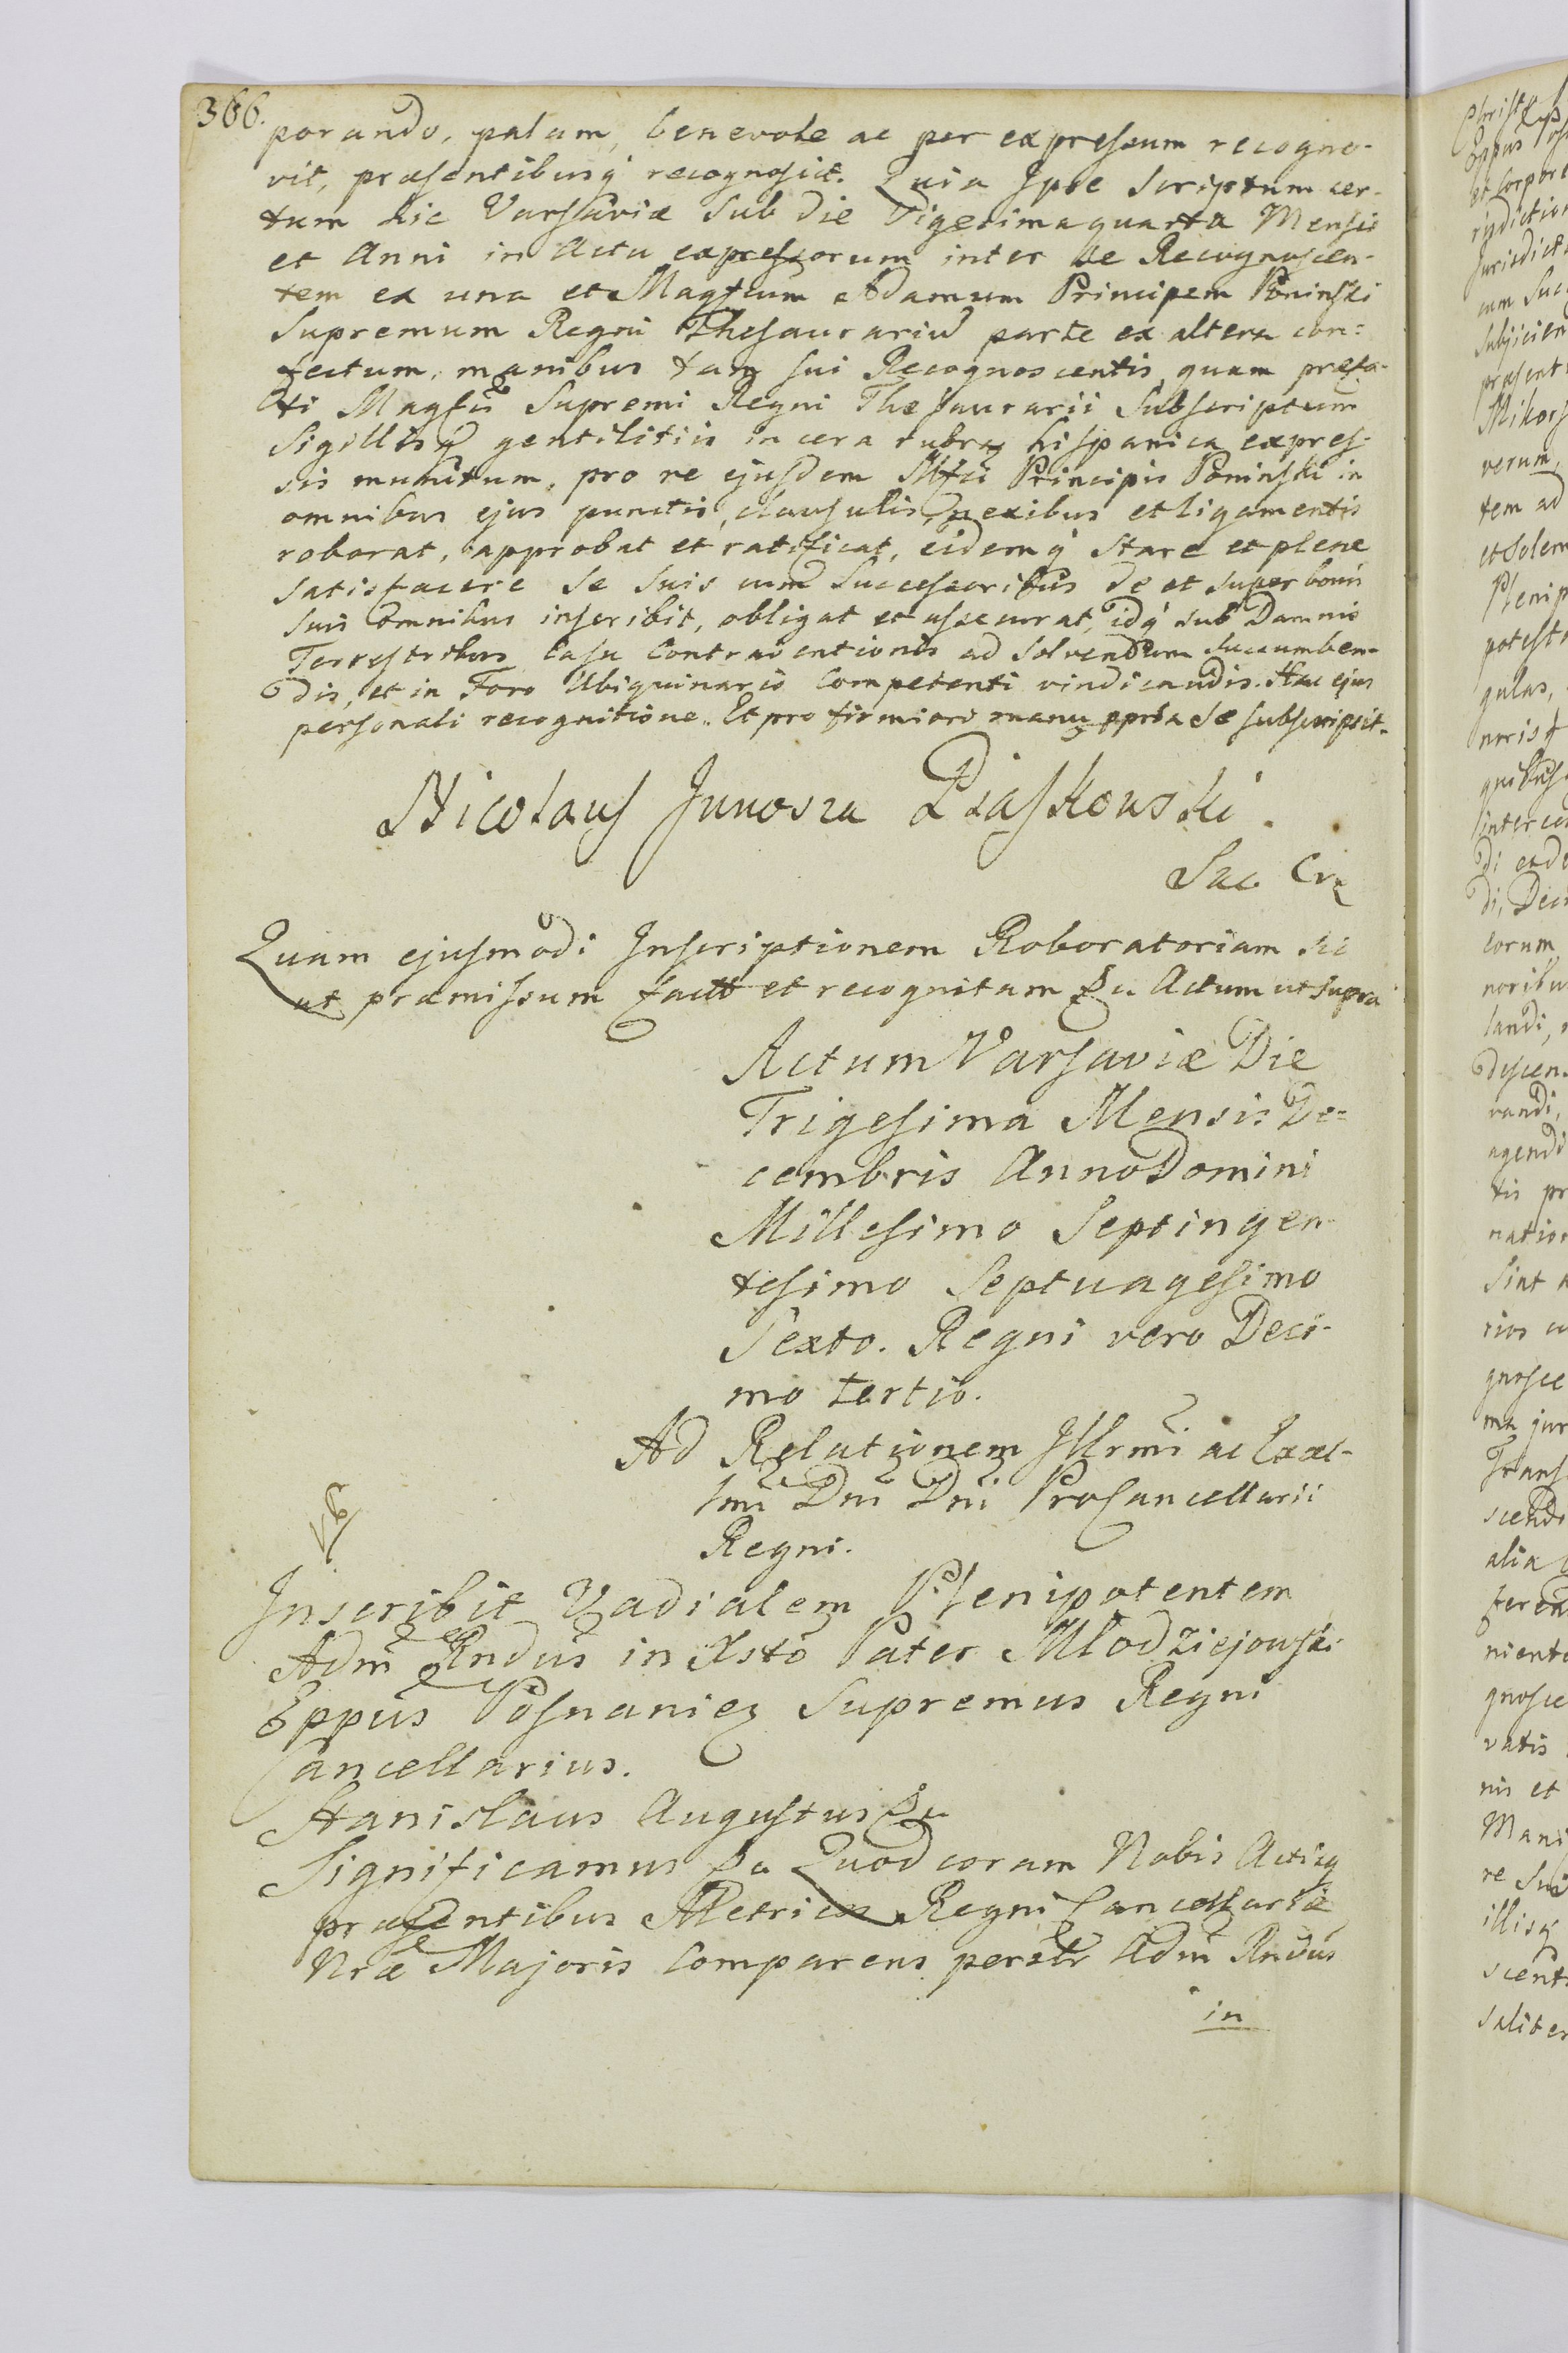 366.
porando, palam, benevole ac per expressum recogno-
vit, præsentibusq́ recognoscit. Quia Ipse Scriptum cer-
tum hic Varsaviæ Sub die Vigesima quarta Mensis
et Anni in Actu expressorum inter se Recognoscen-
tem ex una et Magfcum Adamum Principem Poninski
Supremum Regni Thesaurariu parte ex altera con=
fectum, manibus tam sui Recognoscentis quam præfa-
ti Magfci Supremi Regni Thesaurarii Subscriptum
Sigillisq́ gentilitiis in cera rubra hispanica expres-
sis munitum, pro re ejusdem Principis Poninski in
omnibus ejus punctis, clausulis, nexibus et ligamentis
roborat, approbat et ratificat, eidemq́ Stare et plene
satisfacere se suis cum Successoribus de et super bonis
suis omnibus inscribit, obligat et assecurat, idq́ sub Damnis
Terrestribus Casu Contraventionis ad solvendum succumben-
dis, et in Foro Ubiquinario Competenti vindicandis. Hac ejus
personali recognitione. Et pro firmiori manu ppria se subscripsit.
Nicolaus Junosza Piaskowski.
Quam ejusmodi Inscriptionem Roboratoriam sic
ut præmissum factã et recognitam &c. Actum ut supra
Actum Varsaviæ Die
Trigesima Mensis De=
cembris Anno Domini
Millesimo Septingen-
tesimo Septuagesimo
Sexto. Regni vero Deci-
mo tertio.
Ad Relationem Illrmi ac Excel-
lmi Dni Dni ProCancellarii
Regni.
Inscribit Vadialem Plenipotentem
Adm Rndus in Xsto Pater Młodziejowski
Eppus Posnanien Supremus Regni
Cancellarius.
Stanislaus Augustus &c
Significamus &c Quod coram Nobis Actisq
præsentibus Metrices Regni Cancellariæ
Nræ Majoris Comparens persltr Adm Rndus
in